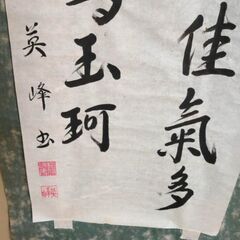 佳氣多
玉珂
英峰书